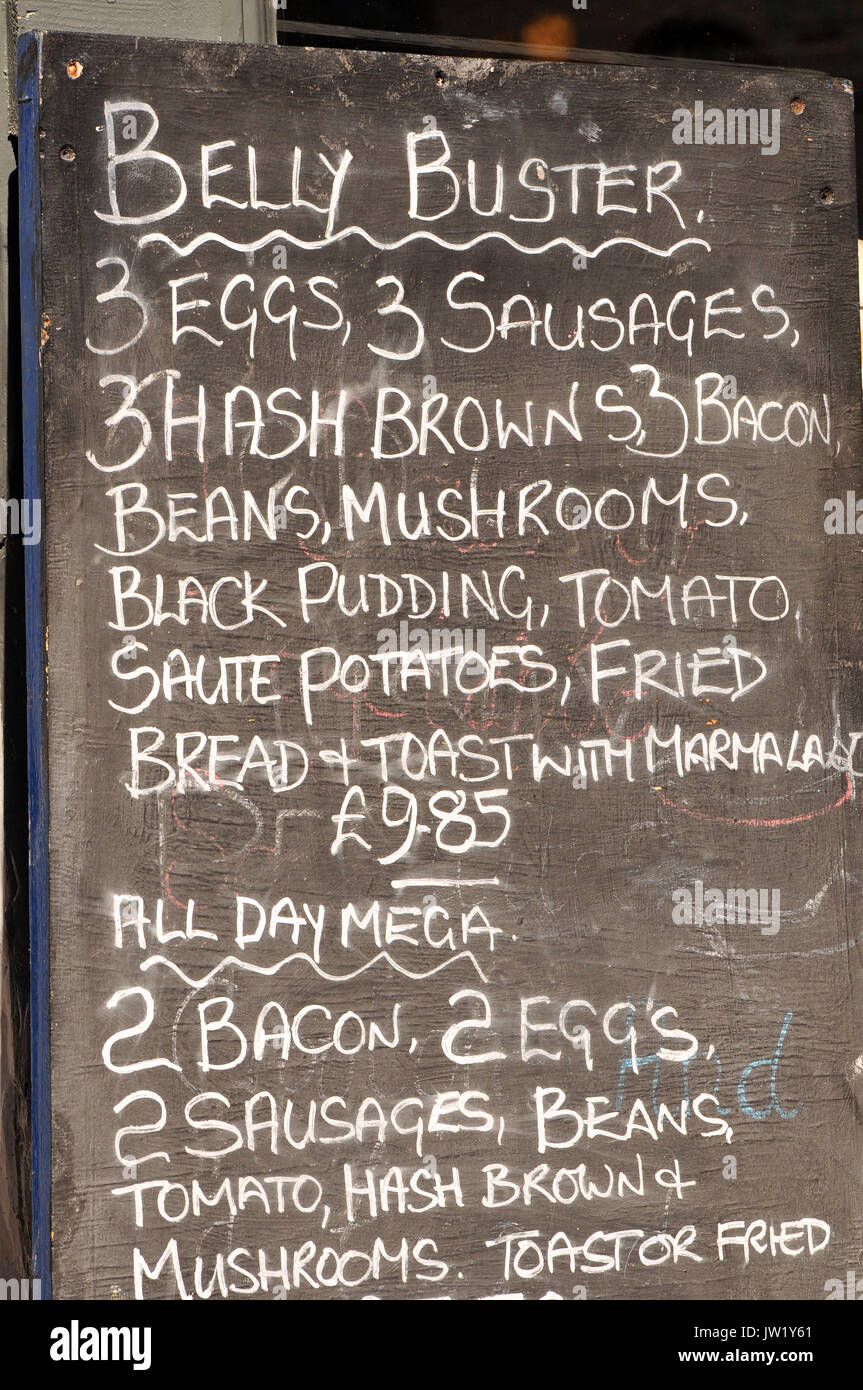 BELLY BUSTER.
3 EGGS, 3 SAUSAGES,
3 HASH BROWNS, 3 BACON,
BEANS, MUSHROOMS,
BLACK PUDDING, TOMATO,
SAUTE POTATOES, FRIED
BREAD + TOAST WITH MARMALADE
£9.85
ALL DAY MEGA.
2 BACON, 2 EGG'S,
2 SAUSAGES, BEANS,
TOMATO, HASH BROWN +
MUSHROOMS. TOAST OR FRIED
alamy
Image ID: JW1Y61
www.alamy.com